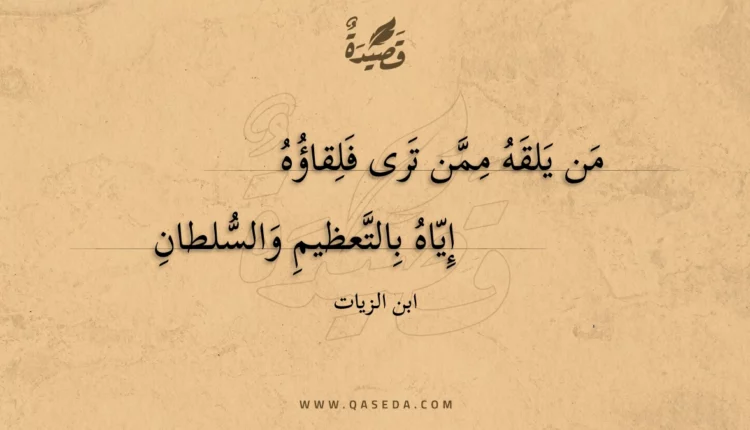 قَصِيْدَةٌ
مَن يَلقَهُ مِمَّن تَرى فَلِقاؤُهُ
إِيّاهُ بِالتَّعظيمِ وَالسُّلطانِ
ابن الزيات
WWW.QASEDA.COM